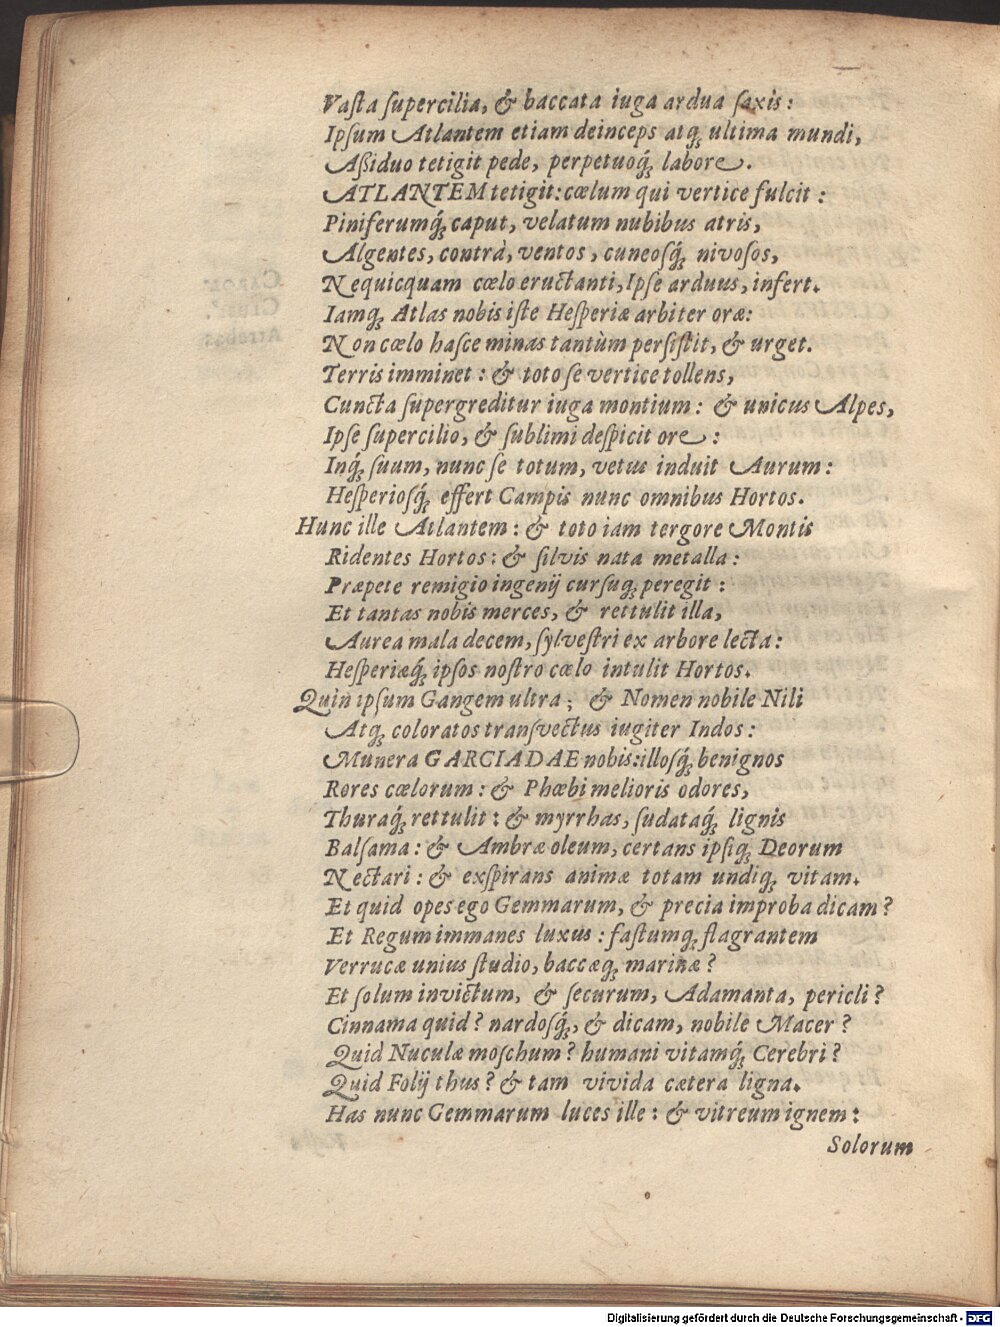 Vaſta ſupercilia, & baccata iuga ardua ſaxis:
Ipſum Atlantem etiam deinceps atq; ultima mundi,
Aßiduo tetigit pede, perpetuoq́; labore.
ATLANTEM tetigit: cœlum qui vertice fulcit:
Piniferumq́; caput, velatum nubibus atris,
Algentes, contrà, ventos, cuneoſq́; nivoſos,
Nequicquam cœlo eructanti, Ipſe arduus, infert.
Iamq; Atlas nobis iſte Heſperiæ arbiter oræ:
Non cœlo haſce minas tantùm perſiſtit, & urget.
Terris imminet: & toto ſe vertice tollens,
Cuncta ſupergreditur iuga montium: & unicus Alpes,
Ipſe ſupercilio, & ſublimi deſpicit ore:
Inq́; ſuum, nunc ſe totum, vetus induit Aurum:
Heſperioſq́; effert Campis nunc omnibus Hortos.
Hunc ille Atlantem: & toto iam tergore Montis
Ridentes Hortos: & ſilvis nata metalla:
Præpete remigio ingenij curſuq; peregit:
Et tantas nobis merces, & rettulit illa,
Aurea mala decem, ſylveſtri ex arbore lecta:
Heſperiæq́; ipſos noſtro cœlo intulit Hortos.
Quin ipſum Gangem ultra; & Nomen nobile Nili
Atq; coloratos tranſvectus iugiter Indos:
Munera GARCIADAE nobis: illoſq́; benignos
Rores cœlorum: & Phœbi melioris odores,
Thuraq́; rettulit: & myrrhas, ſudataq́; lignis
Balſama: & Ambræ oleum, certans ipſiq; Deorum
Nectari: & exſpirans animæ totam undiq; vitam.
Et quid opes ego Gemmarum, & precia improba dicam?
Et Regum immanes luxus: faſtumq; flagrantem
Verrucæ unius ſtudio, baccæq; marinæ?
Et ſolum invictum, & ſecurum, Adamanta, pericli?
Cinnama quid? nardoſq́;, & dicam, nobile Macer?
Quid Nuculæ moſchum? humani vitamq́; Cerebri?
Quid Folij thus? & tam vivida cætera ligna.
Has nunc Gemmarum luces ille: & vitreum ignem:
Solorum
Digitalisierung gefördert durch die Deutsche Forschungsgemeinschaft - DFG